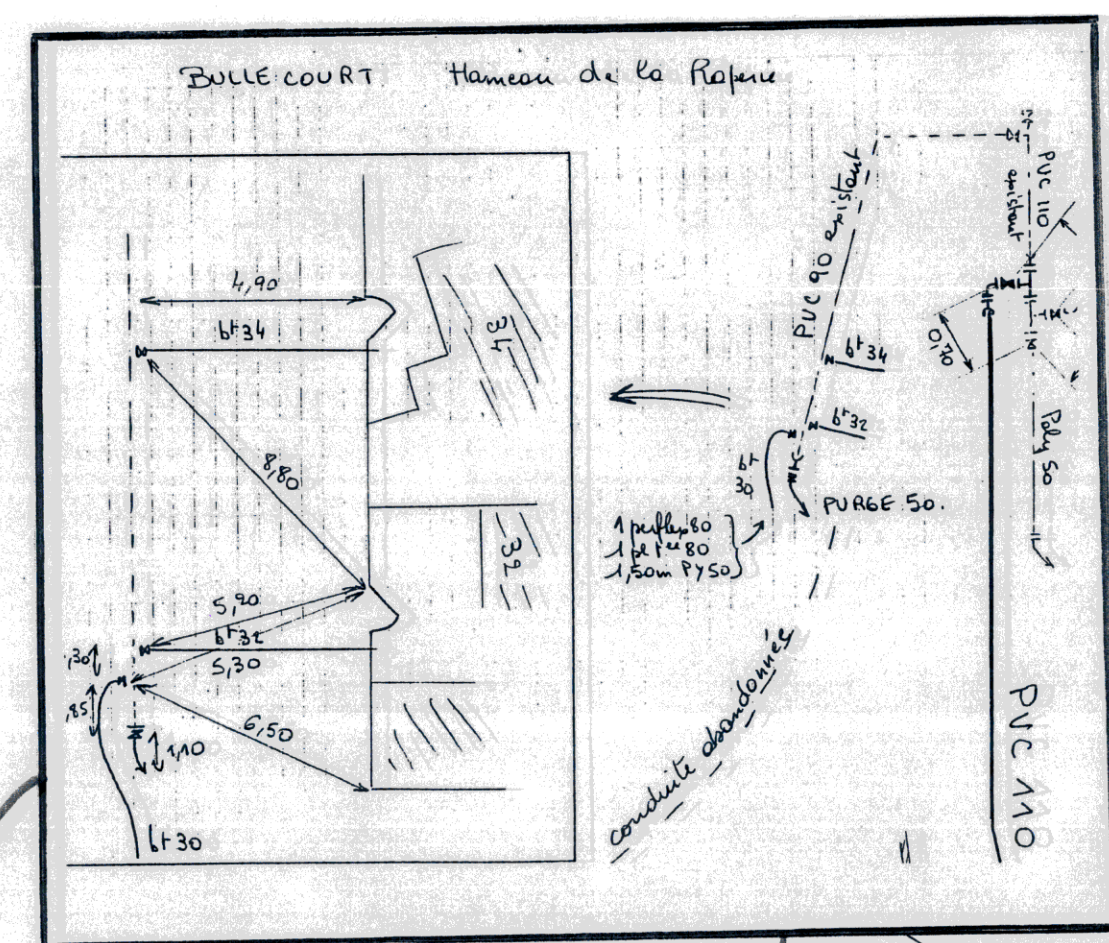 BULLECOURT Hameau de la Raperie
4,90
bt 34
34
8,80
32
5,90
bt 32
5,30
,30
,85
6,50
1,10
bt 30
PVC 90 existant
bt 34
bt 32
bt
30
PURGE 50.
1 perflex 80
1,50m PY50
conduite abandonnée
PVC 110
existant
0,70
Poly 50
PVC 110